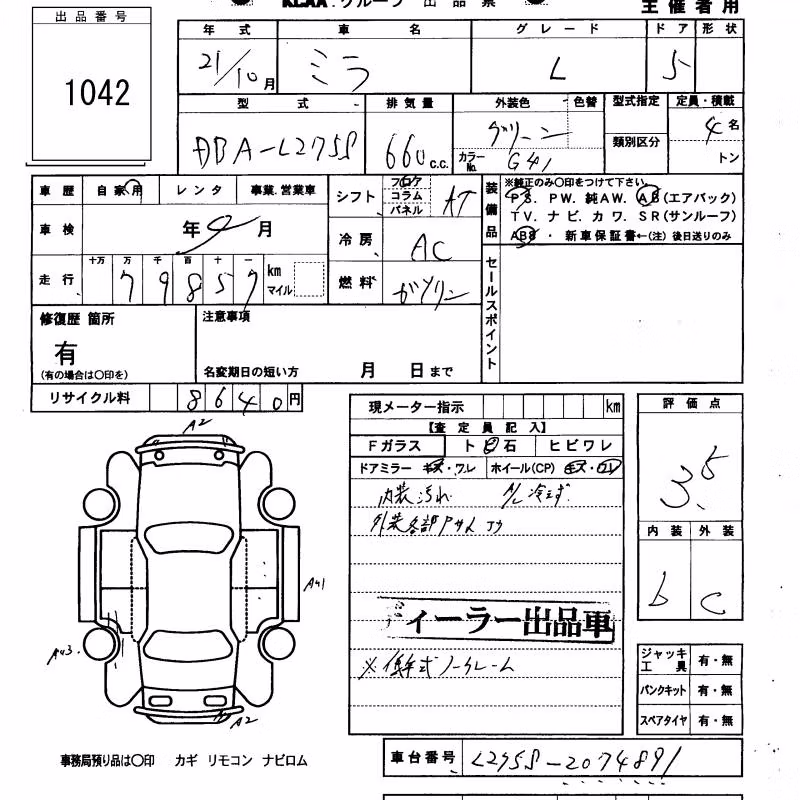 KCAA.グループ 出品票
主催者用
出品番号
1042
年式 車名 グレード ドア 形状
21/10月 ミラ L 5
型式 排気量 外装色 色替 型式指定 定員・積載
DBA-L275S 660c.c. グリーン 4名
カラーNo. G41 類別区分 トン
車歴 自家用 レンタ 事業.営業車 シフト フロア コラム パネル AT
装備品 ※純正のみ〇印をつけて下さい。
PS. PW. 純AW. AB(エアバック)
TV. ナビ. カワ. SR(サンルーフ)
ABS ・ 新車保証書←(注) 後日送りのみ
車検 年 月 冷房 AC
走行 十万 万 千 百 十 一
79857 km マイル 燃料 ガソリン
セールスポイント
修復歴 箇所 注意事項
有
(有の場合は〇印を) 名変期日の短い方 月 日まで
リサイクル料 8640円
現メーター指示 km
【査定員記入】
Fガラス ト ビ 石 ヒビワレ
ドアミラー キズ・ワレ ホイール(CP) キズ・ワレ
内装汚れ A/C冷えず
外装各部
ディーラー出品車
※低年式ノークレーム
評価点
3.5
内装 外装
b C
A2
A41
A43
A2
ジャッキ工具 有・無
パンクキット 有・無
スペアタイヤ 有・無
事務局預り品は〇印 カギ リモコン ナビロム
車台番号 L275S-2074891